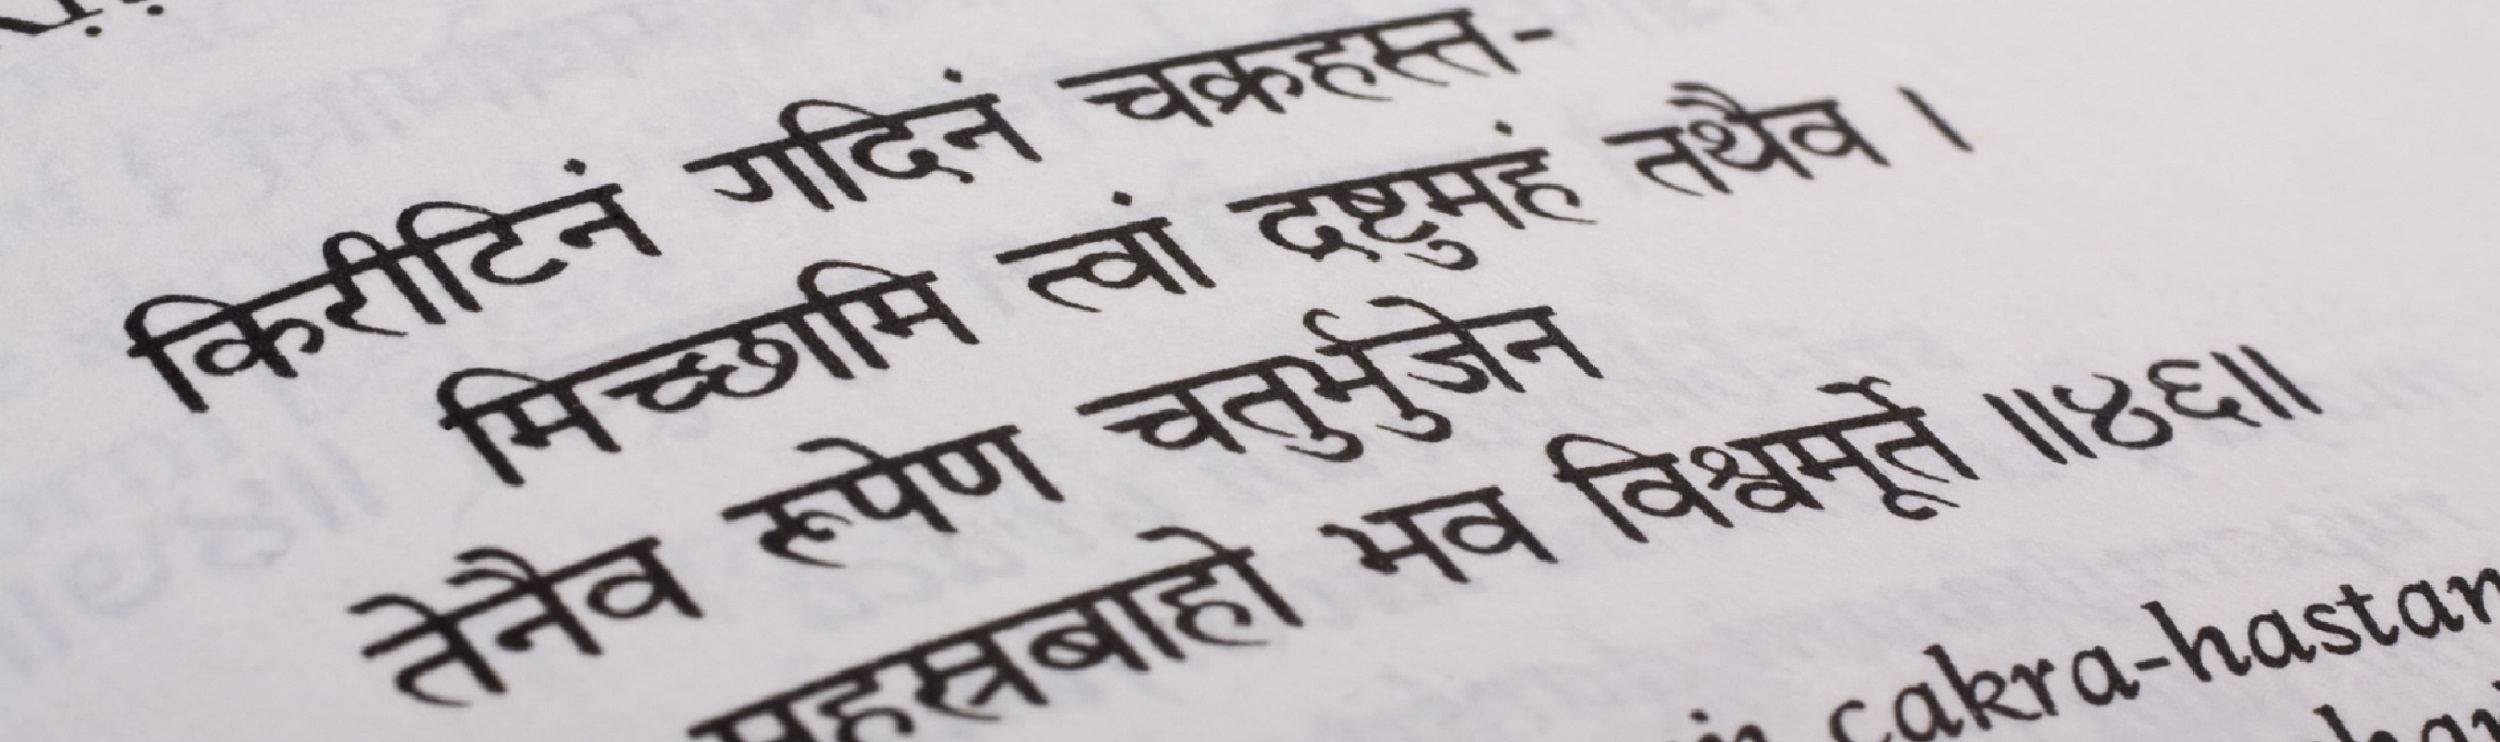 किरीटिनं गदिनं चक्रहस्त-
मिच्छामि त्वां द्रष्टुमहं तथैव ।
तेनैव रूपेण चतुर्भुजेन
सहस्रबाहो भव विश्वमूर्ते ॥४६॥
cakra-hastam